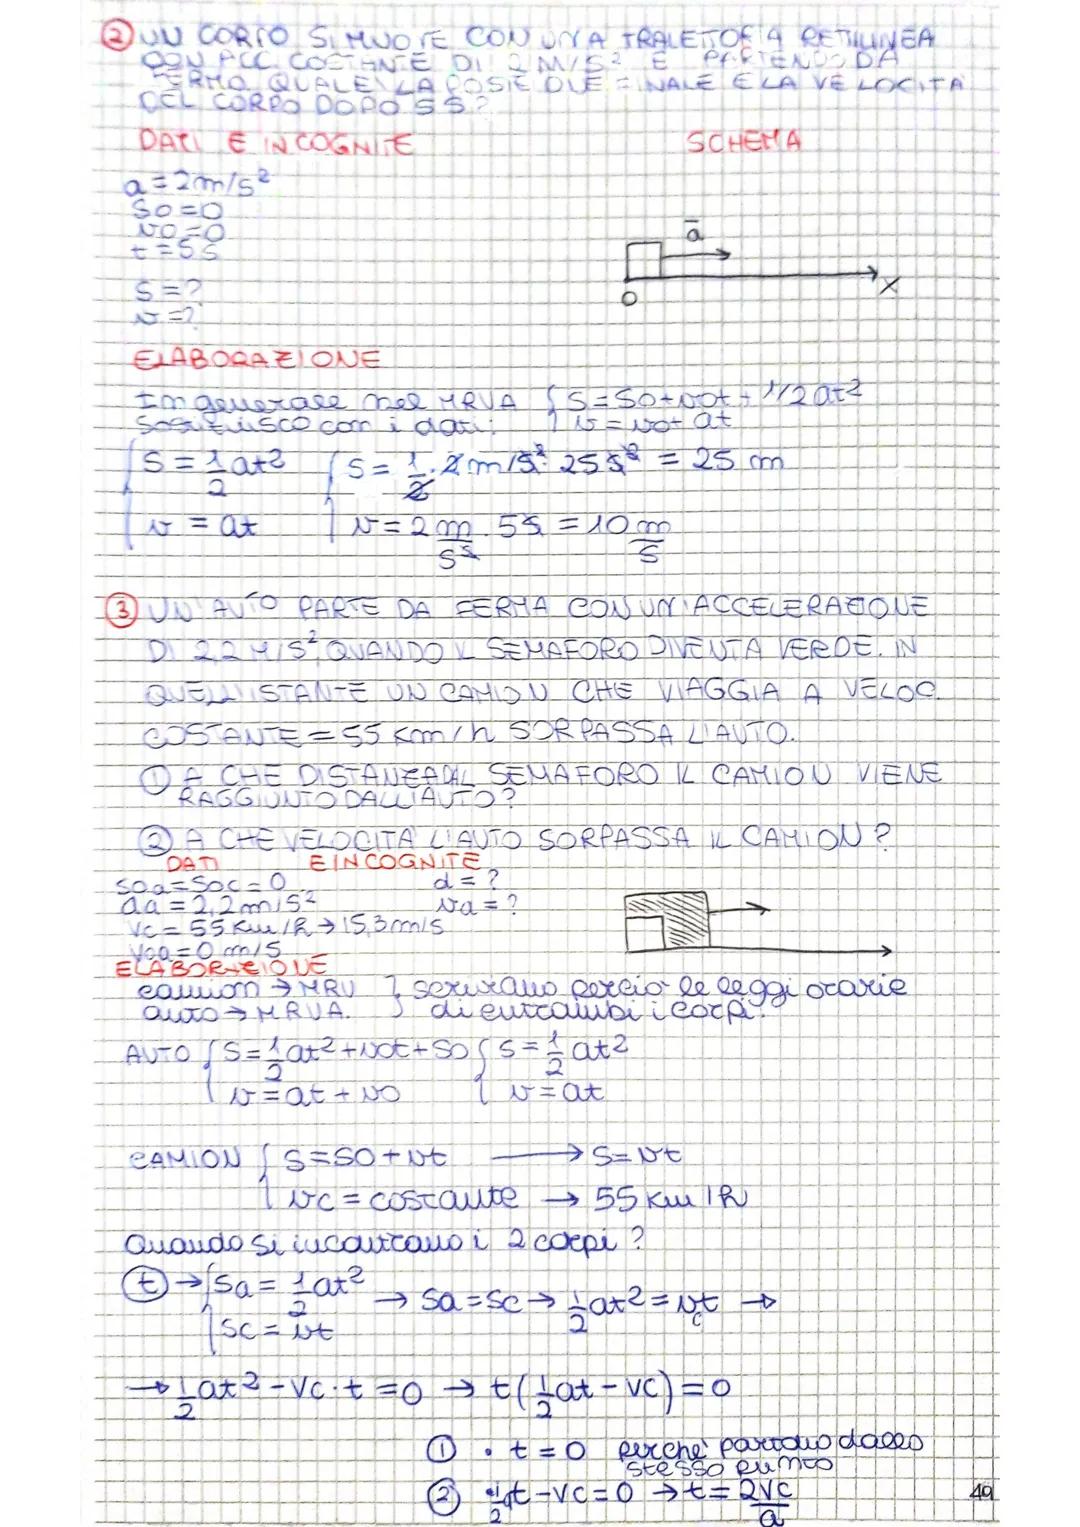 ② UN CORPO SI MUOVE CON UNA TRAIETTORIA RETTILINEA
CON ACC. COSTANTE DI 2 M/S² E PARTENDO DA
FERMO. QUALE LA POSIZIONE FINALE E LA VELOCITÀ
DEL CORPO DOPO 5 S?
DATI E INCOGNITE
SCHEMA
a = 2m/s²
S0 = 0
v0 = 0
t = 5 s
S = ?
v = ?
ā
0
X
ELABORAZIONE
In generale nel MRVA { S = S0 + v0t + 1/2 at²
Sostituisco con i dati: v = v0 + at
{ S = 1/2 at² { S = 1/2 · 2 m/s² · 25 s² = 25 m
v = at v = 2 m/s² · 5s = 10 m/s
③ UN'AUTO PARTE DA FERMA CON UN'ACCELERAZIONE
DI 2,2 M/S² QUANDO IL SEMAFORO DIVENTA VERDE. IN
QUELL'ISTANTE UN CAMION CHE VIAGGIA A VELOC.
COSTANTE = 55 Km/h SORPASSA L'AUTO.
① A CHE DISTANZA DAL SEMAFORO IL CAMION VIENE
RAGGIUNTO DALL'AUTO?
② A CHE VELOCITÀ L'AUTO SORPASSA IL CAMION?
DATI E INCOGNITE
S0a = S0c = 0 d = ?
aa = 2,2 m/s² va = ?
vc = 55 Km/h → 15,3 m/s
v0a = 0 m/s
ELABORAZIONE
camion → MRU } scriviamo perciò le leggi orarie
auto → MRVA. } di entrambi i corpi.
AUTO { S = 1/2 at² + v0t + S0 { S = 1/2 at²
v = at + v0 v = at
CAMION { S = S0 + vt → S = vt
vc = costante → 55 Km/h
Quando si incontrano i 2 corpi?
ⓣ → { Sa = 1/2 at² → Sa = Sc → 1/2 at² = vct →
Sc = vt
→ 1/2 at² - Vc · t = 0 → t(1/2 at - vc) = 0
① • t = 0 perché partono dallo
stesso punto
② 1/2 at - vc = 0 → t = 2vc/a
49